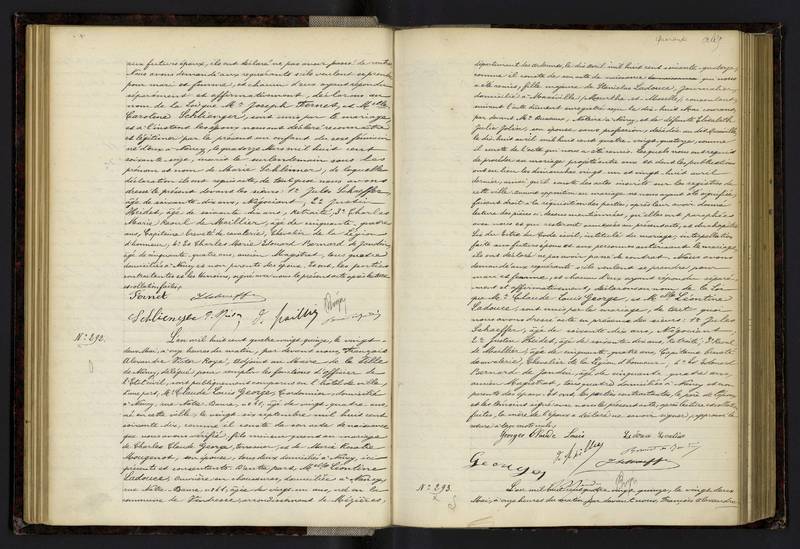 aux futurs époux, ils ont déclaré ne pas avoir passé de contrat
Nous avons demandé aux requérants s'ils veulent se prendre
pour mari et femme, et chacun d'eux ayant répondu
séparément et affirmativement, déclarons au
nom de la Loi que Mr Joseph Fornet, et Melle
Caroline Schlienger, sont unis par le mariage
et à l'instant les époux nous ont déclaré reconnaître
et légitimer par le présent un enfant du sexe féminin
né d'eux à Nancy, le quatorze Mars mil huit cent
soixante onze, inscrit le surlendemain sous les
prénom et nom de Marie Schlienner, de laquelle
déclaration ils ont requis acte, de tout quoi nous avons
dressé le présent devant les sieurs: 1º Jules Schaeffer,
âgé de soixante dix ans, Négociant, 2º Justin
Thédet, âgé de soixante dix ans, retraité, 3º Charles
Marie Raoul de Marillier, âgé de cinquante quatre
ans, Capitaine breveté de cavalerie, Chevalier de la Légion
d'honneur, 4º Léo Charles Marie Edouard Bernard de Jandin,
âgé de cinquante quatre ans, ancien Magistrat, tous quatre
domiciliés à Nancy et non parents des époux. Et ont, les parties
contractantes et les témoins, signé avec nous le présent acte après lecture
et collation faites.
Fornet
Schlienger
Nº 292.
L'an mil huit cent quatre vingt quinze, le vingt
deux Mai, à onze heures du matin, par devant nous, François
Alexandre Victor Roger, Adjoint au Maire de la Ville
de Nancy, délégué pour remplir les fonctions d'officier de
l'Etat civil, sont publiquement comparus en l'hôtel de ville,
d'une part, Mr Claude Louis George, Cordonnier, domicilié
à Nancy, rue Notre Dame, né
né en cette ville, le vingt six septembre mil huit cent
soixante dix, comme il conste de son acte de naissance
que nous avons vérifié, fils majeur quand au mariage
de Charles Claude George, tourneur, et de Marie Rosalie
Mougenot, son épouse, tous deux domiciliés à Nancy, ici
présents et consentants. D'autre part, Melle Léontine
Ladouce, ouvrière en chaussures, domiciliée à Nancy,
rue Notre-Dame, âgée de vingt un ans, née en la
commune de Vendresse, arrondissement de Mézières,
département des Ardennes, le dix avril mil huit cent soixante quatorze,
comme il conste de son acte de naissance qui nous
a été remis, fille majeure de Stanislas Ladouce, Journalier,
domicilié à Maxéville, Meurthe et Moselle, consentant
suivant l'acte
par devant Me Houssaux, Notaire à Nancy, et de défunte Elisabeth
Julie Joliot, son épouse, sans profession, décédée au dit Maxéville,
le dix huit avril mil huit cent quatre vingt quatorze, comme
il conste de l'acte qui nous a été remis. Lesquels nous ont requis
de procéder au mariage projeté entre eux et dont les publications
ont eu lieu les dimanches vingt un et vingt huit avril
dernier, ainsi qu'il conste des actes inscrits sur les registres de
cette ville. Aucune opposition au mariage ne nous ayant été signifiée,
faisant droit à la réquisition des parties, après leur avoir donné
lecture des pièces ci-dessus mentionnées, qu'elles ont paraphées
avec nous et qui resteront annexées au présent acte, et du chapitre
six du titre du Code civil, intitulé du mariage, interpellation
faite aux futurs époux et aux personnes autorisant le mariage,
ils ont déclaré ne pas avoir passé de contrat. Nous avons
demandé aux requérants s'ils veulent se prendre pour
mari et femme, et chacun d'eux ayant répondu séparé-
ment et affirmativement, déclarons au nom de la Loi
que Mr Claude Louis George, et Melle Léontine
Ladouce, sont unis par le mariage, de tout quoi
nous avons dressé acte en présence des sieurs: 1º Jules
Schaeffer, âgé de soixante dix ans, Négociant,
2º Justin Thédet, âgé de soixante dix ans, retraité, 3º Raoul
de Marillier, âgé de cinquante quatre ans, Capitaine breveté
de cavalerie, Chevalier de la Légion d'honneur, 4º Léo Edouard
Bernard de Jandin, âgé de cinquante quatre ans,
ancien Magistrat, tous quatre domiciliés à Nancy et non
parents des époux. Et ont les parties contractantes, le père de l'époux
et les témoins signé avec nous le présent acte, après lecture et collation
faites, la mère de l'époux a déclaré ne savoir signer,
George Claude Louis
Ladouce Léontine
George
Nº 293.
L'an mil huit cent quatre vingt quinze, le vingt deux
Mai, à onze heures du matin, par devant nous, François Alexandre